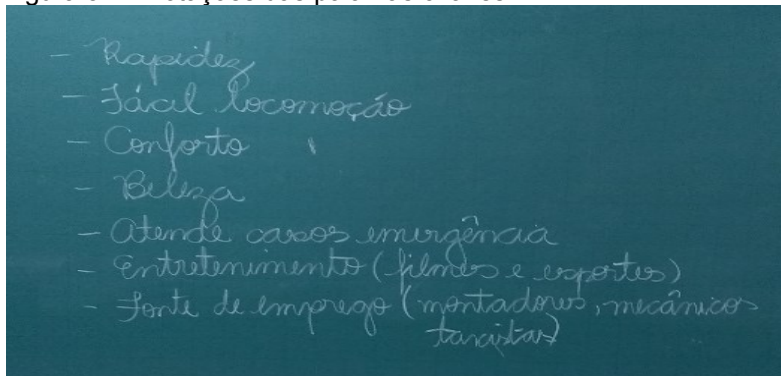 - Rapidez
- Fácil locomoção
- Conforto
- Beleza
- Atende casos emergência
- Entretenimento (filmes e esportes)
- Fonte de emprego (montadores, mecânicos
taxistas)